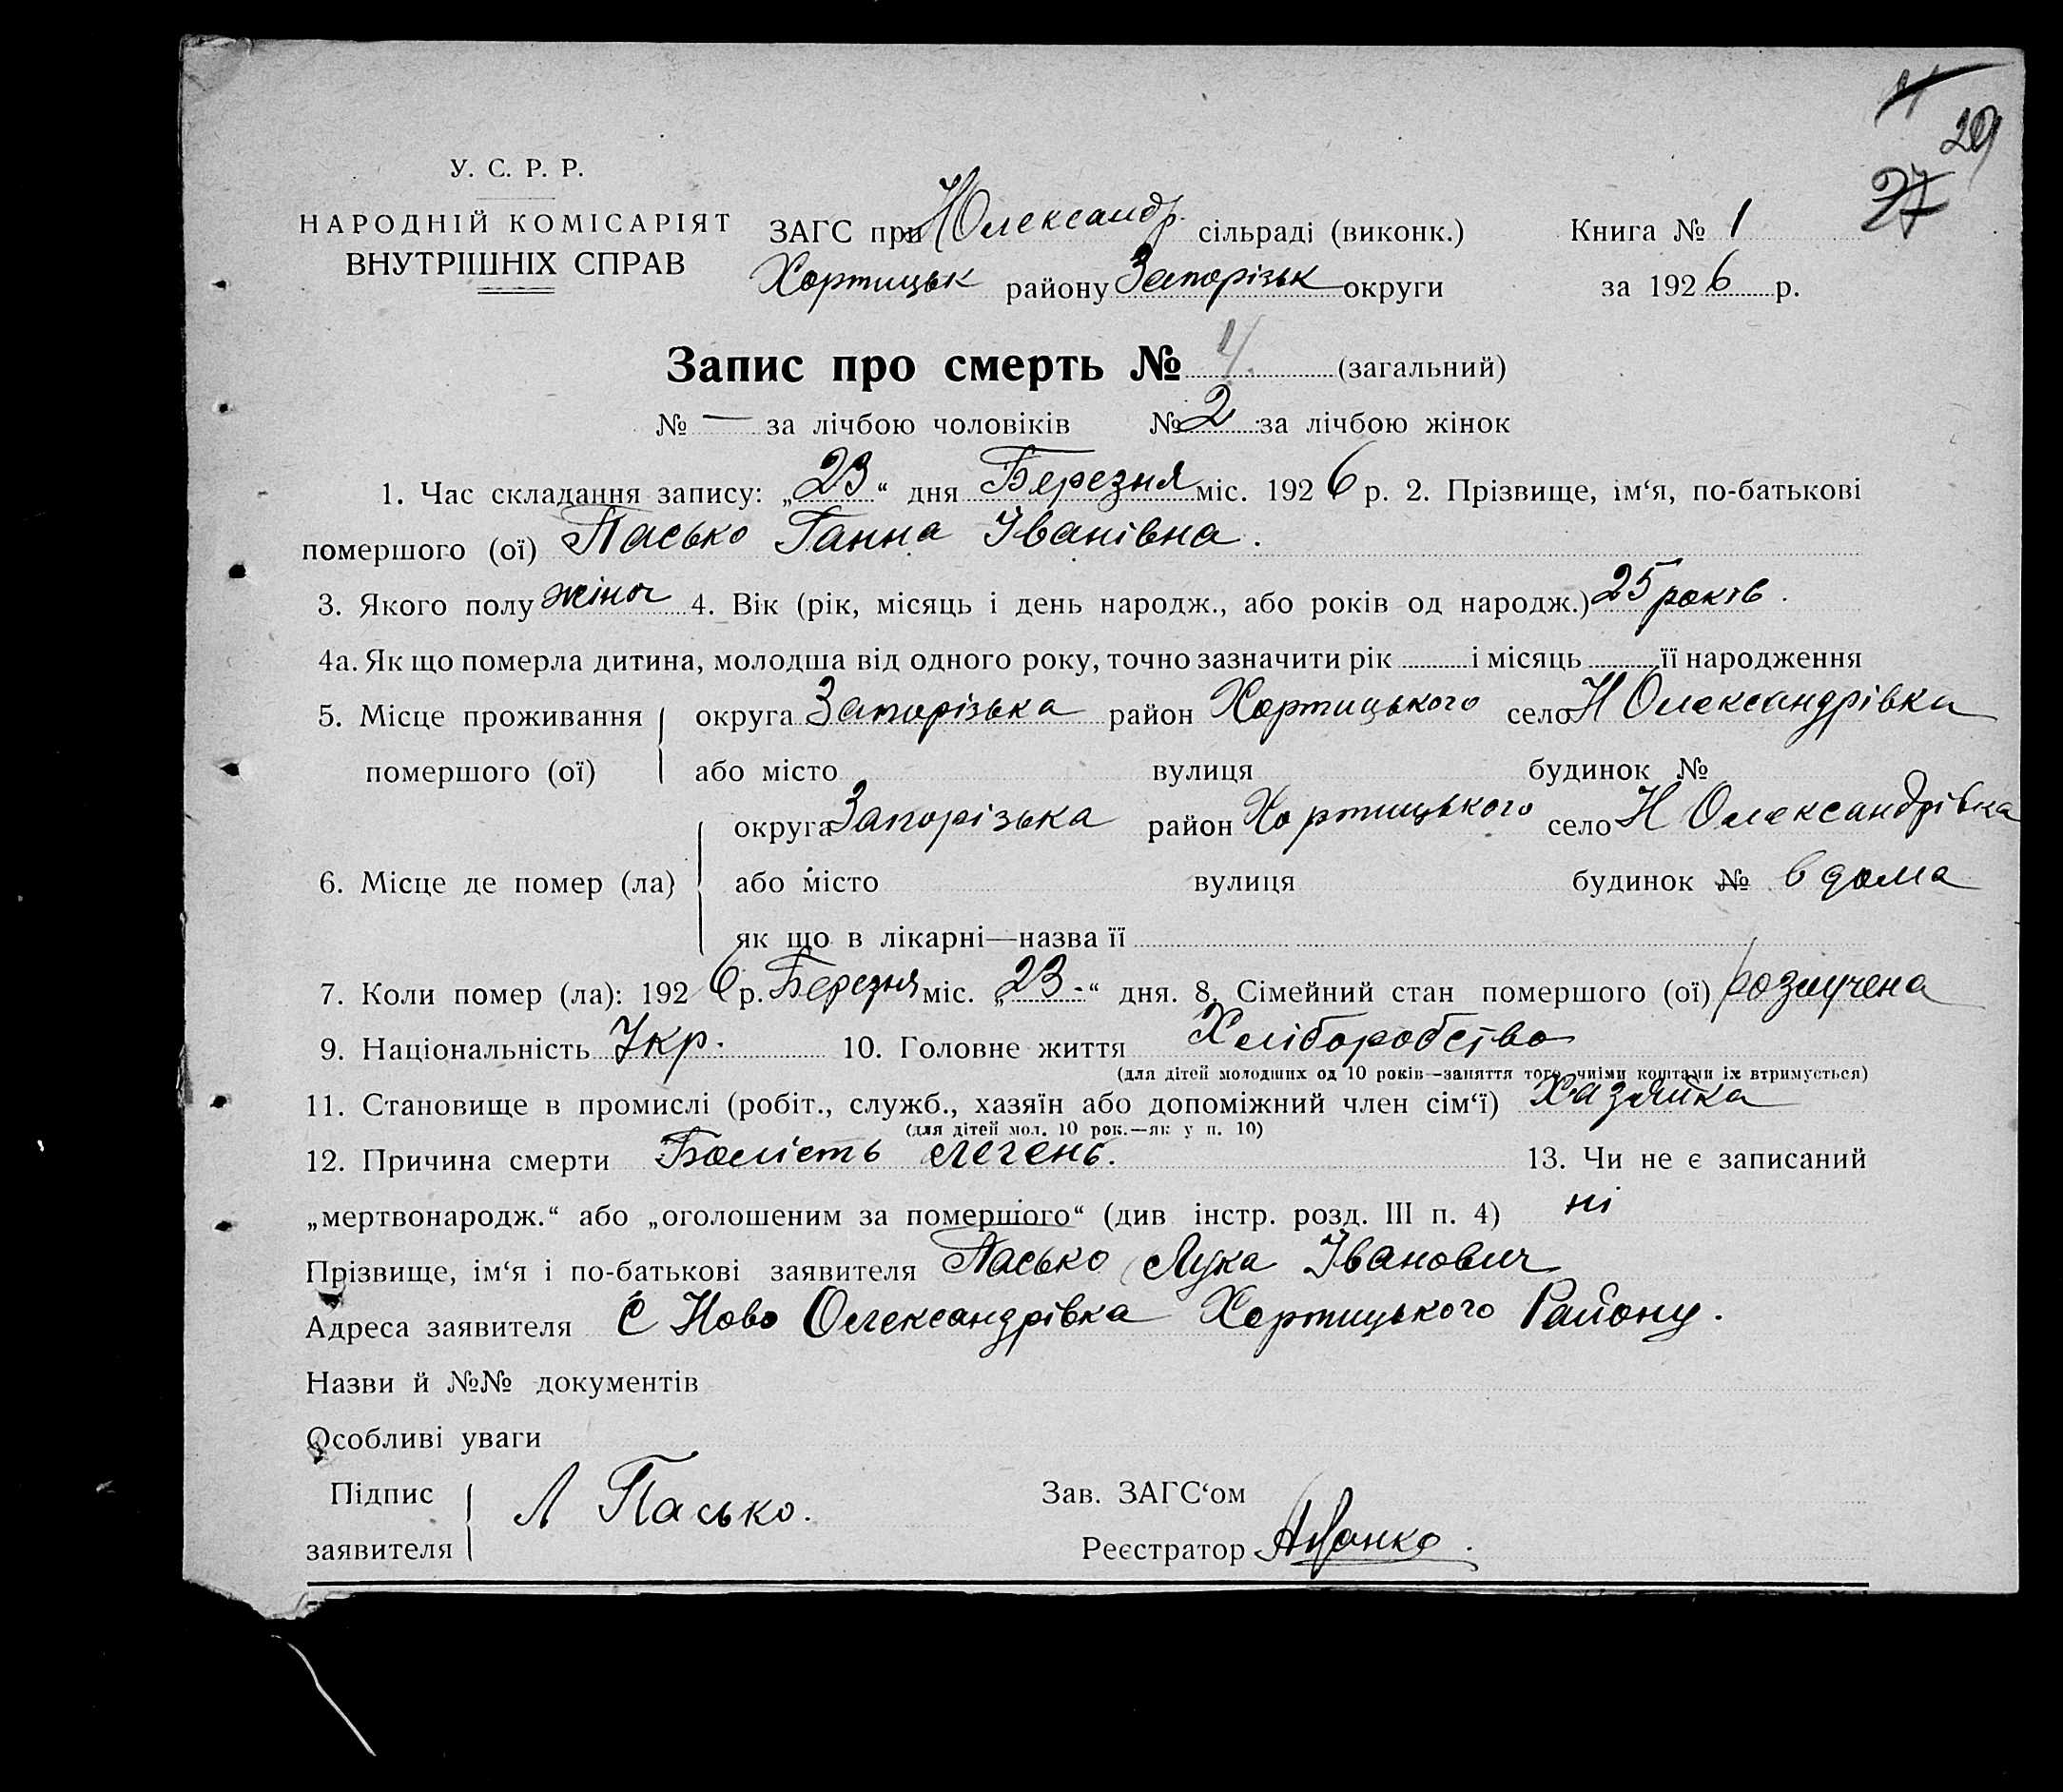 29
27
У. С. Р. Р.
НАРОДНІЙ КОМІСАРІЯТ
ВНУТРІШНІХ СПРАВ
ЗАГС при НОлександр. сільраді (виконк.) Книга № 1
Хортицьк району Запорізьк округи за 1926 р.
Запис про смерть № 4. (загальний)
№ — за лічбою чоловіків № 2 за лічбою жінок
1. Час складання запису: „23“ дня Березня міс. 1926 р. 2. Прізвище, ім‘я, по-батькові
помершого (ої) Пасько Ганна Іванівна.
3. Якого полу жіноч 4. Вік (рік, місяць і день народж., або років од народж.) 25 років.
4а. Як що померла дитина, молодша від одного року, точно зазначити рік і місяць її народження
5. Місце проживання округа Запорізька район Хортицького село Н Олександрівка
помершого (ої) або місто вулиця будинок №
округа Запорізька район Хортицького село Н Олександрівка
6. Місце де помер (ла) або місто вулиця будинок № в дома
як що в лікарні—назва її
7. Коли помер (ла): 1926 р. Березня міс. „23.“ дня. 8. Сімейний стан помершого (ої) розлучена
9. Національність Укр. 10. Головне життя Хліборобство
(для дітей молодших од 10 років—заняття того, чиїми коштами їх втримується)
11. Становище в промислі (робіт., служб., хазяїн або допоміжний член сім‘ї) Хазяйка
(для дітей мол. 10 рок.—як у п. 10)
12. Причина смерти Болість легень. 13. Чи не є записаний
„мертвонародж.“ або „оголошеним за помершого“ (див інстр. розд. III п. 4) ні
Прізвище, ім‘я і по-батькові заявителя Пасько Лука Іванович
Адреса заявителя С Ново Олександрівка Хортицького Району.
Назви й №№ документів
Особливі уваги
Підпис заявителя Л Пасько.
Зав. ЗАГС‘ом
Реєстратор